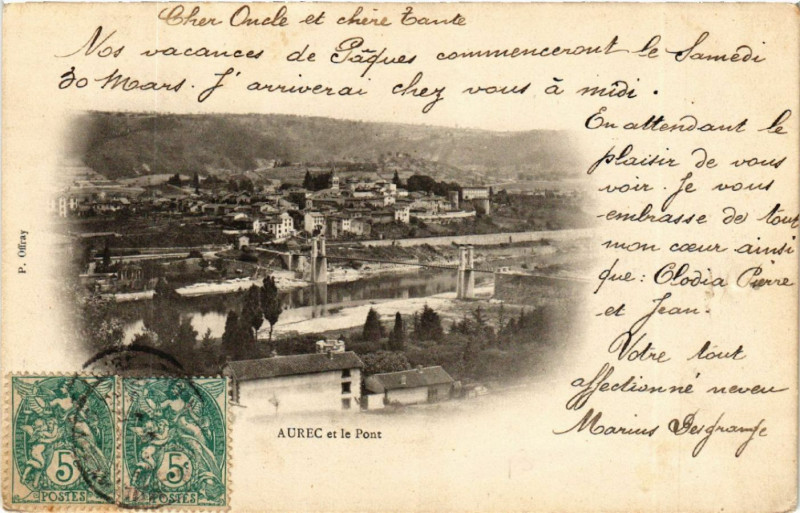 Cher Oncle et chère Tante
Nos vacances de Pâques commenceront le Samedi
30 Mars. J'arriverai chez vous à midi.
En attendant le
plaisir de vous
voir. Je vous
embrasse de tout
mon cœur ainsi
que: Clodia Pierre
et Jean.
Votre tout
affectionné neveu
Marius Desgrange
P. Offray
AUREC et le Pont
5 5
POSTES POSTES